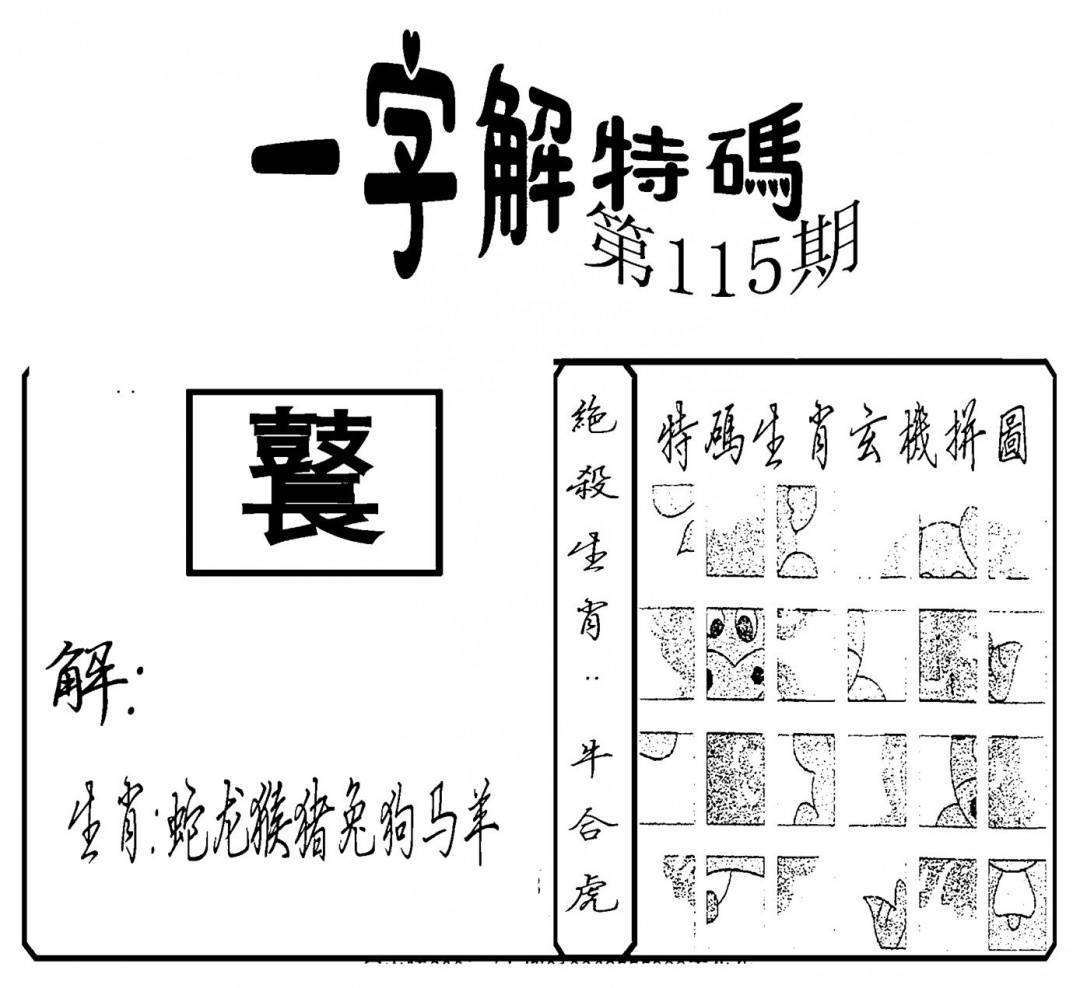 一字解特碼
第115期
鼚
解：
生肖:蛇龙猴猪兔狗马羊
絶殺生肖：牛合虎
特碼生肖玄機拼圖